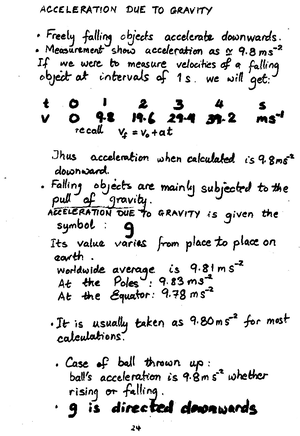 ACCELERATION DUE TO GRAVITY
• Freely falling objects accelerate downwards.
• Measurement show acceleration as ≃ 9.8 ms⁻²
If we were to measure velocities of a falling
object at intervals of 1s. we will get:
t 0 1 2 3 4 s
v 0 9.8 19.6 29.4 39.2 ms⁻¹
recall V_f = V_o + at
Thus acceleration when calculated is 9.8ms⁻²
downward.
• Falling objects are mainly subjected to the
pull of gravity.
ACCELERATION DUE TO GRAVITY is given the
symbol : g
Its value varies from place to place on
earth.
worldwide average is 9.81 ms⁻²
At the Poles : 9.83 ms⁻²
At the Equator: 9.78 ms⁻²
• It is usually taken as 9.80 ms⁻² for most
calculations.
• Case of ball thrown up:
ball's acceleration is 9.8 ms⁻² whether
rising or falling.
• g is directed downwards
24